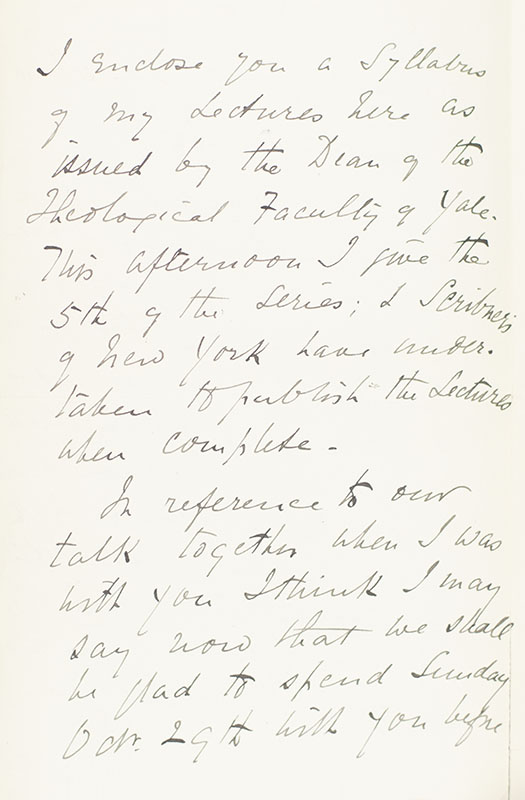 I enclose you a Syllabus
of my Lectures here as
issued by the Dean of the
Theological Faculty of Yale.
This afternoon I give the
5th of the series; & Scribners
of New York have under-
taken to publish the Lectures
when complete -
In reference to our
talk together when I was
with you I think I may
say now that we shall
be glad to spend Sunday
Oct. 29th with you before